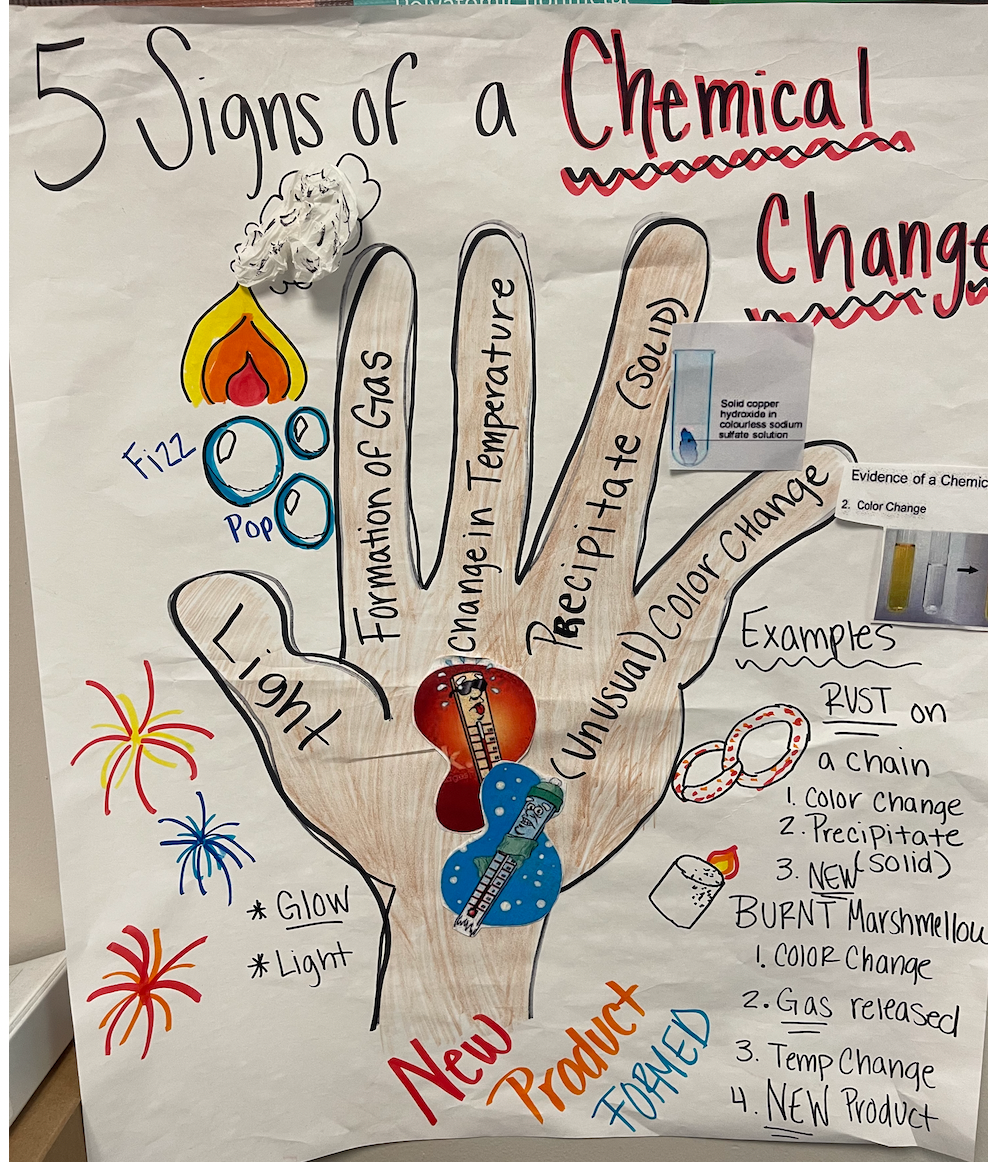 5 Signs of a Chemical
Change
Fizz
Pop
Light
Formation of Gas
Change in Temperature
Precipitate (SOLID)
(Unusual) Color CHange
Solid copper
hydroxide in
colourless sodium
sulfate solution
Evidence of a Chemic
2. Color Change
Examples
RUST on
a chain
1. Color Change
2. Precipitate
(Solid)
3. NEW
BURNT Marshmellow
1. COlOR Change
2. Gas released
3. Temp Change
4. NEW Product
* Glow
* Light
New
Product
FORMED